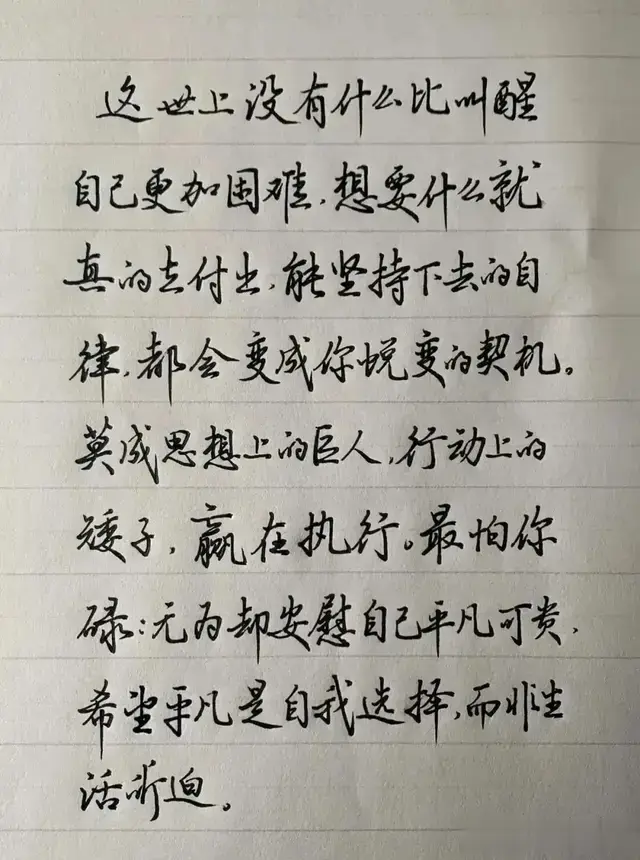 这世上没有什么比叫醒
自己更加困难,想要什么就
真的去付出,能坚持下去的自
律,都会变成你蜕变的契机。
莫成思想上的巨人,行动上的
矮子,赢在执行。最怕你
碌:无为却安慰自己平凡可贵,
希望平凡是自我选择,而非生
活所迫。